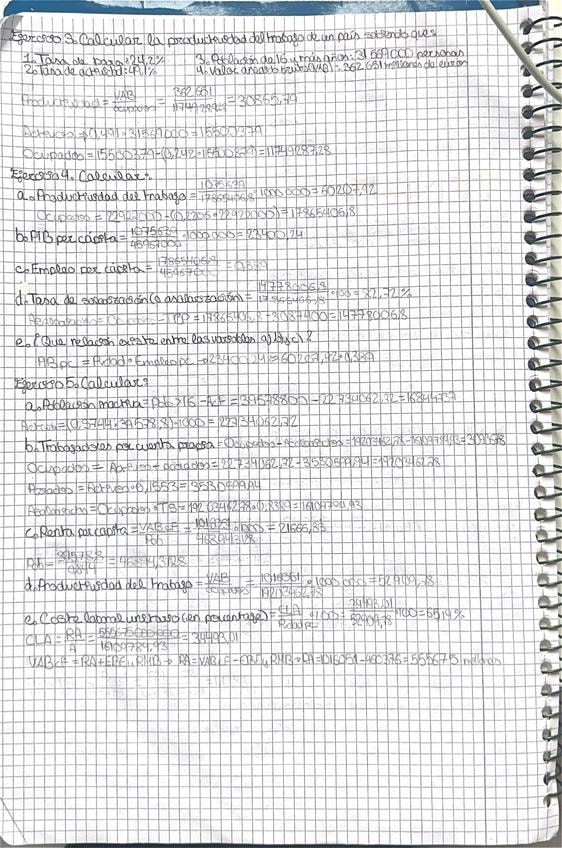 Ejercicio 3. Calcular la productividad del trabajo de un país sabiendo que:
1. Tasa de paro: 24,2% 3. Población de 16 y más años: 31569000 personas
2. Tasa de actividad: 49,1% 4. Valor añadido bruto (VAB): 362 651 millones de euros
Productividad = VAB / ocupados = 362 651 / 11749287,28 = 30865,79
Activos → 0,491 · 31569000 = 15500379
Ocupados = 15500379 - (0,242 · 15500379) = 11749287,28
Ejercicio 4. Calcular:
a. Productividad del trabajo = 1075639 / 17865406,8 · 1000000 = 60207,92
Ocupados = 22922000 - (0,2206 · 22922000) = 17865406,8
b. PIB per cápita = 1075639 / 45967000 · 1000000 = 23400,24
c. Empleo per cápita = 17865406,8 / 45967000 = 0,389
d. Tasa de asalarización (o salarización) = 14778006,8 / 17865406,8 · 100 = 82,72%
Asalariados = Ocupados - TCP = 17865406,8 - 3087400 = 14778006,8
e. ¿Que relación existe entre las variables a), b) y c)?
= Pdad · Empleo pc → 23400,24 = 60207,92 · 0,389
Ejercicio 5. Calcular:
a. Población inactiva = Pob > 16 - Act = 39578800 - 22734062,72 = 16844737
Activos = (0,5744 · 39578,8) · 1000 = 22734062,72
b. Trabajadores por cuenta propia = Ocupados - Asalariados = 19203462,78 - 16109784,93 = 3093678
Ocupados = Activos - parados = 22734062,72 - 3530599,94 = 19203462,78
Parados = Activos · 0,1553 = 3530599,94
Asalariados = Ocupados · TS = 19203462,78 · 0,8389 = 16109784,93
c. Renta per cápita = VABcf / Pob = 1016051 / · 1000 = 21666,83
Pob = 39578,8 / 0,844 = 46894,3128
d. Productividad del trabajo = VAB / ocupados = 1016051 / 19203462,78 · 1000 000 = 52909,78
e. Coste laboral unitario (en porcentaje) = CLA / Pdad pc · 100 = 34493,01 / 52909,78 · 100 = 65,19%
CLA = RA / A = 555675000000 / 16109784,93 = 34493,01
VABcf = RA + EBE y RMB → RA = VABcf - EBE y RMB → RA = 1016051 - 460376 = 555675 millones